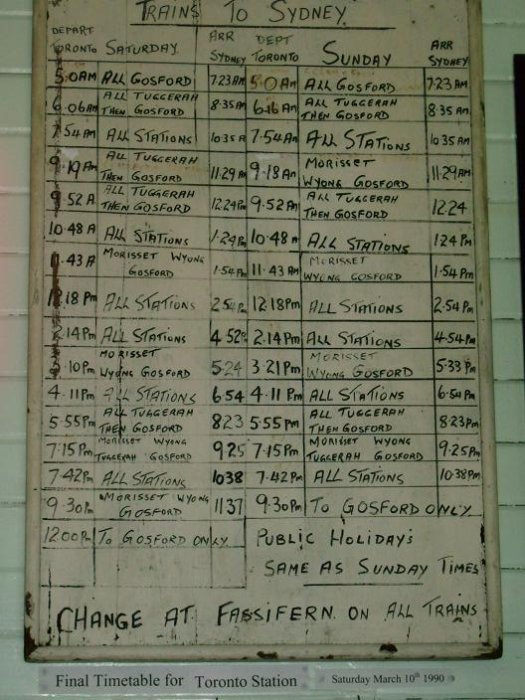 TRAINS TO SYDNEY.
DEPART TORONTO SATURDAY. ARR SYDNEY DEPT TORONTO SUNDAY ARR SYDNEY
5.0AM ALL GOSFORD 7.23AM 5.0 AM ALL GOSFORD 7.23 AM
6.06AM ALL TUGGERAH THEN GOSFORD 8.35AM 6.16 AM ALL TUGGERAH THEN GOSFORD 8.35 AM
7.54 AM ALL STATIONS 10.35 A 7.54 AM ALL STATIONS 10.35 AM
9.19AM ALL TUGGERAH THEN GOSFORD 11.29 AM 9.18 AM MORISSET WYONG GOSFORD 11.29 AM
9.52 A ALL TUGGERAH THEN GOSFORD 12.24 PM 9.52 AM ALL TUGGERAH THEN GOSFORD 12.24
10.48 A ALL STATIONS 1.24 PM 10.48 M ALL STATIONS 1.24 PM
11.43 A MORISSET WYONG GOSFORD 1.54 PM 11.43 AM MORISSET WYONG GOSFORD 1.54 PM
12.18 PM ALL STATIONS 2.54 P 12.18 PM ALL STATIONS 2.54 PM
2.14 PM ALL STATIONS 4 52 2.14 PM ALL STATIONS 4.54 PM
10 PM MORISSET WYONG GOSFORD 5.24 3.21 PM MORISSET WYONG GOSFORD 5.33 PM
4.11PM ALL STATIONS 6.54 4.11 PM ALL STATIONS 6.54 PM
5.55PM ALL TUGGERAH THEN GOSFORD 8.23 5.55 PM ALL TUGGERAH THEN GOSFORD 8.23 PM
7.15 PM MORISSET WYONG TUGGERAH GOSFORD 9.25 7.15 PM MORISSET WYONG TUGGERAH GOSFORD 9.25 PM
7.42PM ALL STATIONS 10.38 7.42 PM ALL STATIONS 10.38 PM
9.30PM MORISSET WYONG GOSFORD 11.37 9.30 PM TO GOSFORD ONLY
12.00 PM TO GOSFORD ONLY PUBLIC HOLIDAY'S
SAME AS SUNDAY TIMES
CHANGE AT FASSIFERN. ON ALL TRAINS
Final Timetable for Toronto Station Saturday March 10th 1990